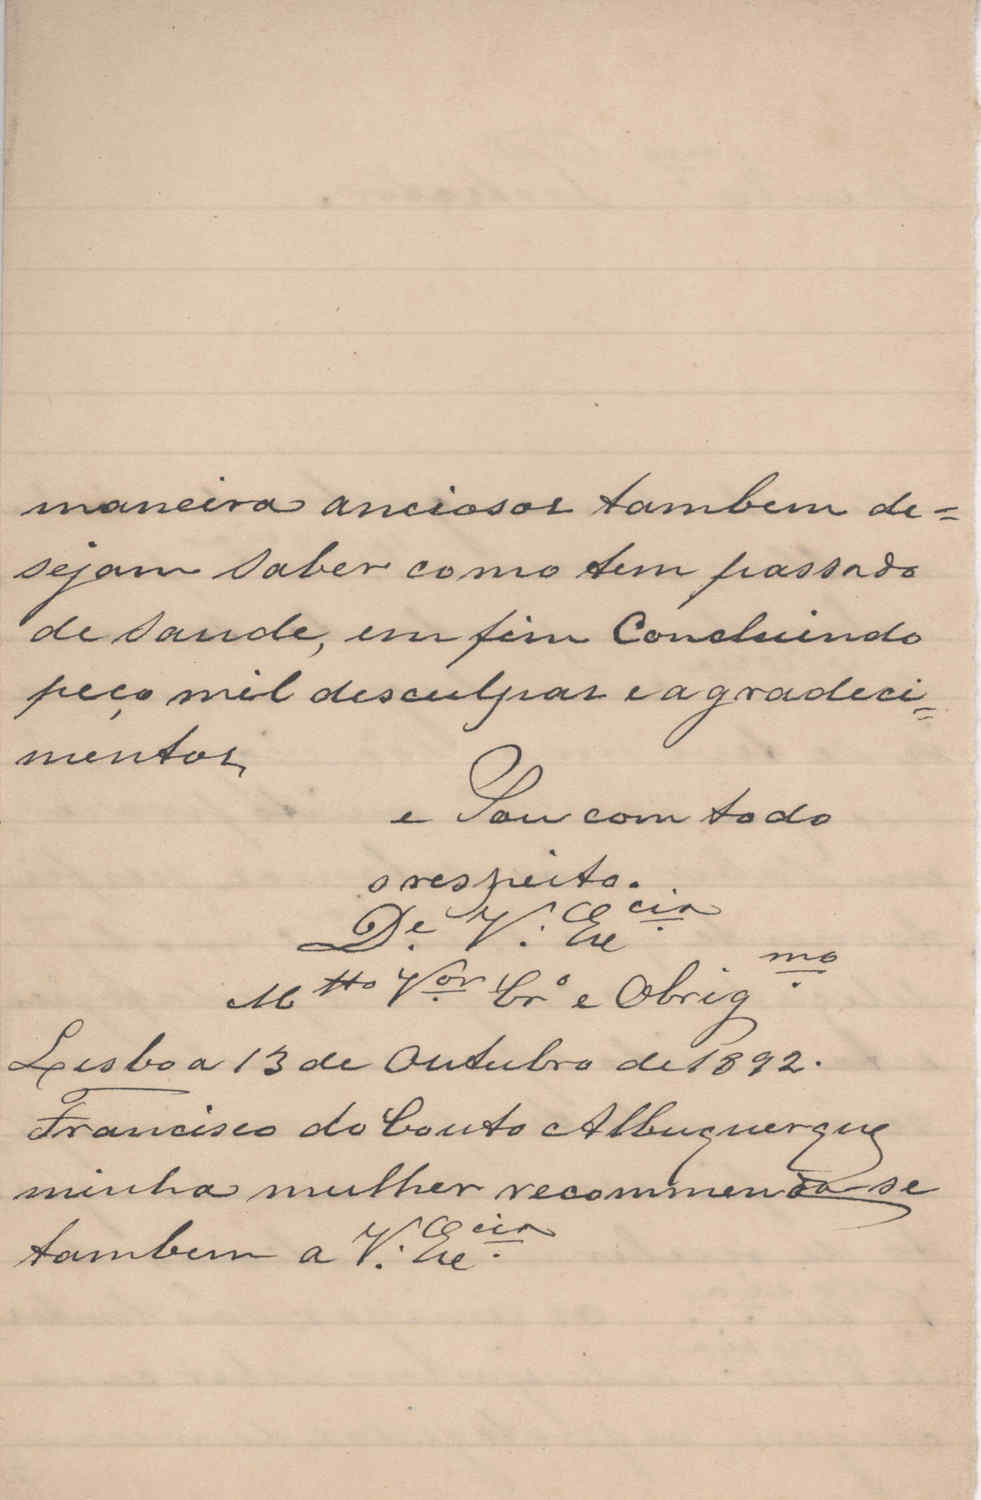 maneira anciosos tambem de=
sejam saber como tem passado
de saude, em fim Concluindo
peço mil desculpas e agradeci=
mentos,
e Sou com todo
o respeito.
De V. Excia
Mtto Vor Cro e Obrigmo
Lisboa 13 de Outubro de 1892.
Francisco do Couto Albuquerque
minha mulher recommenda-se
tambem a V. Excia